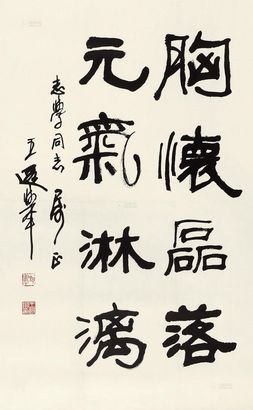 胸懷磊落
元氣淋漓
志學同志 屬正
王遐舉